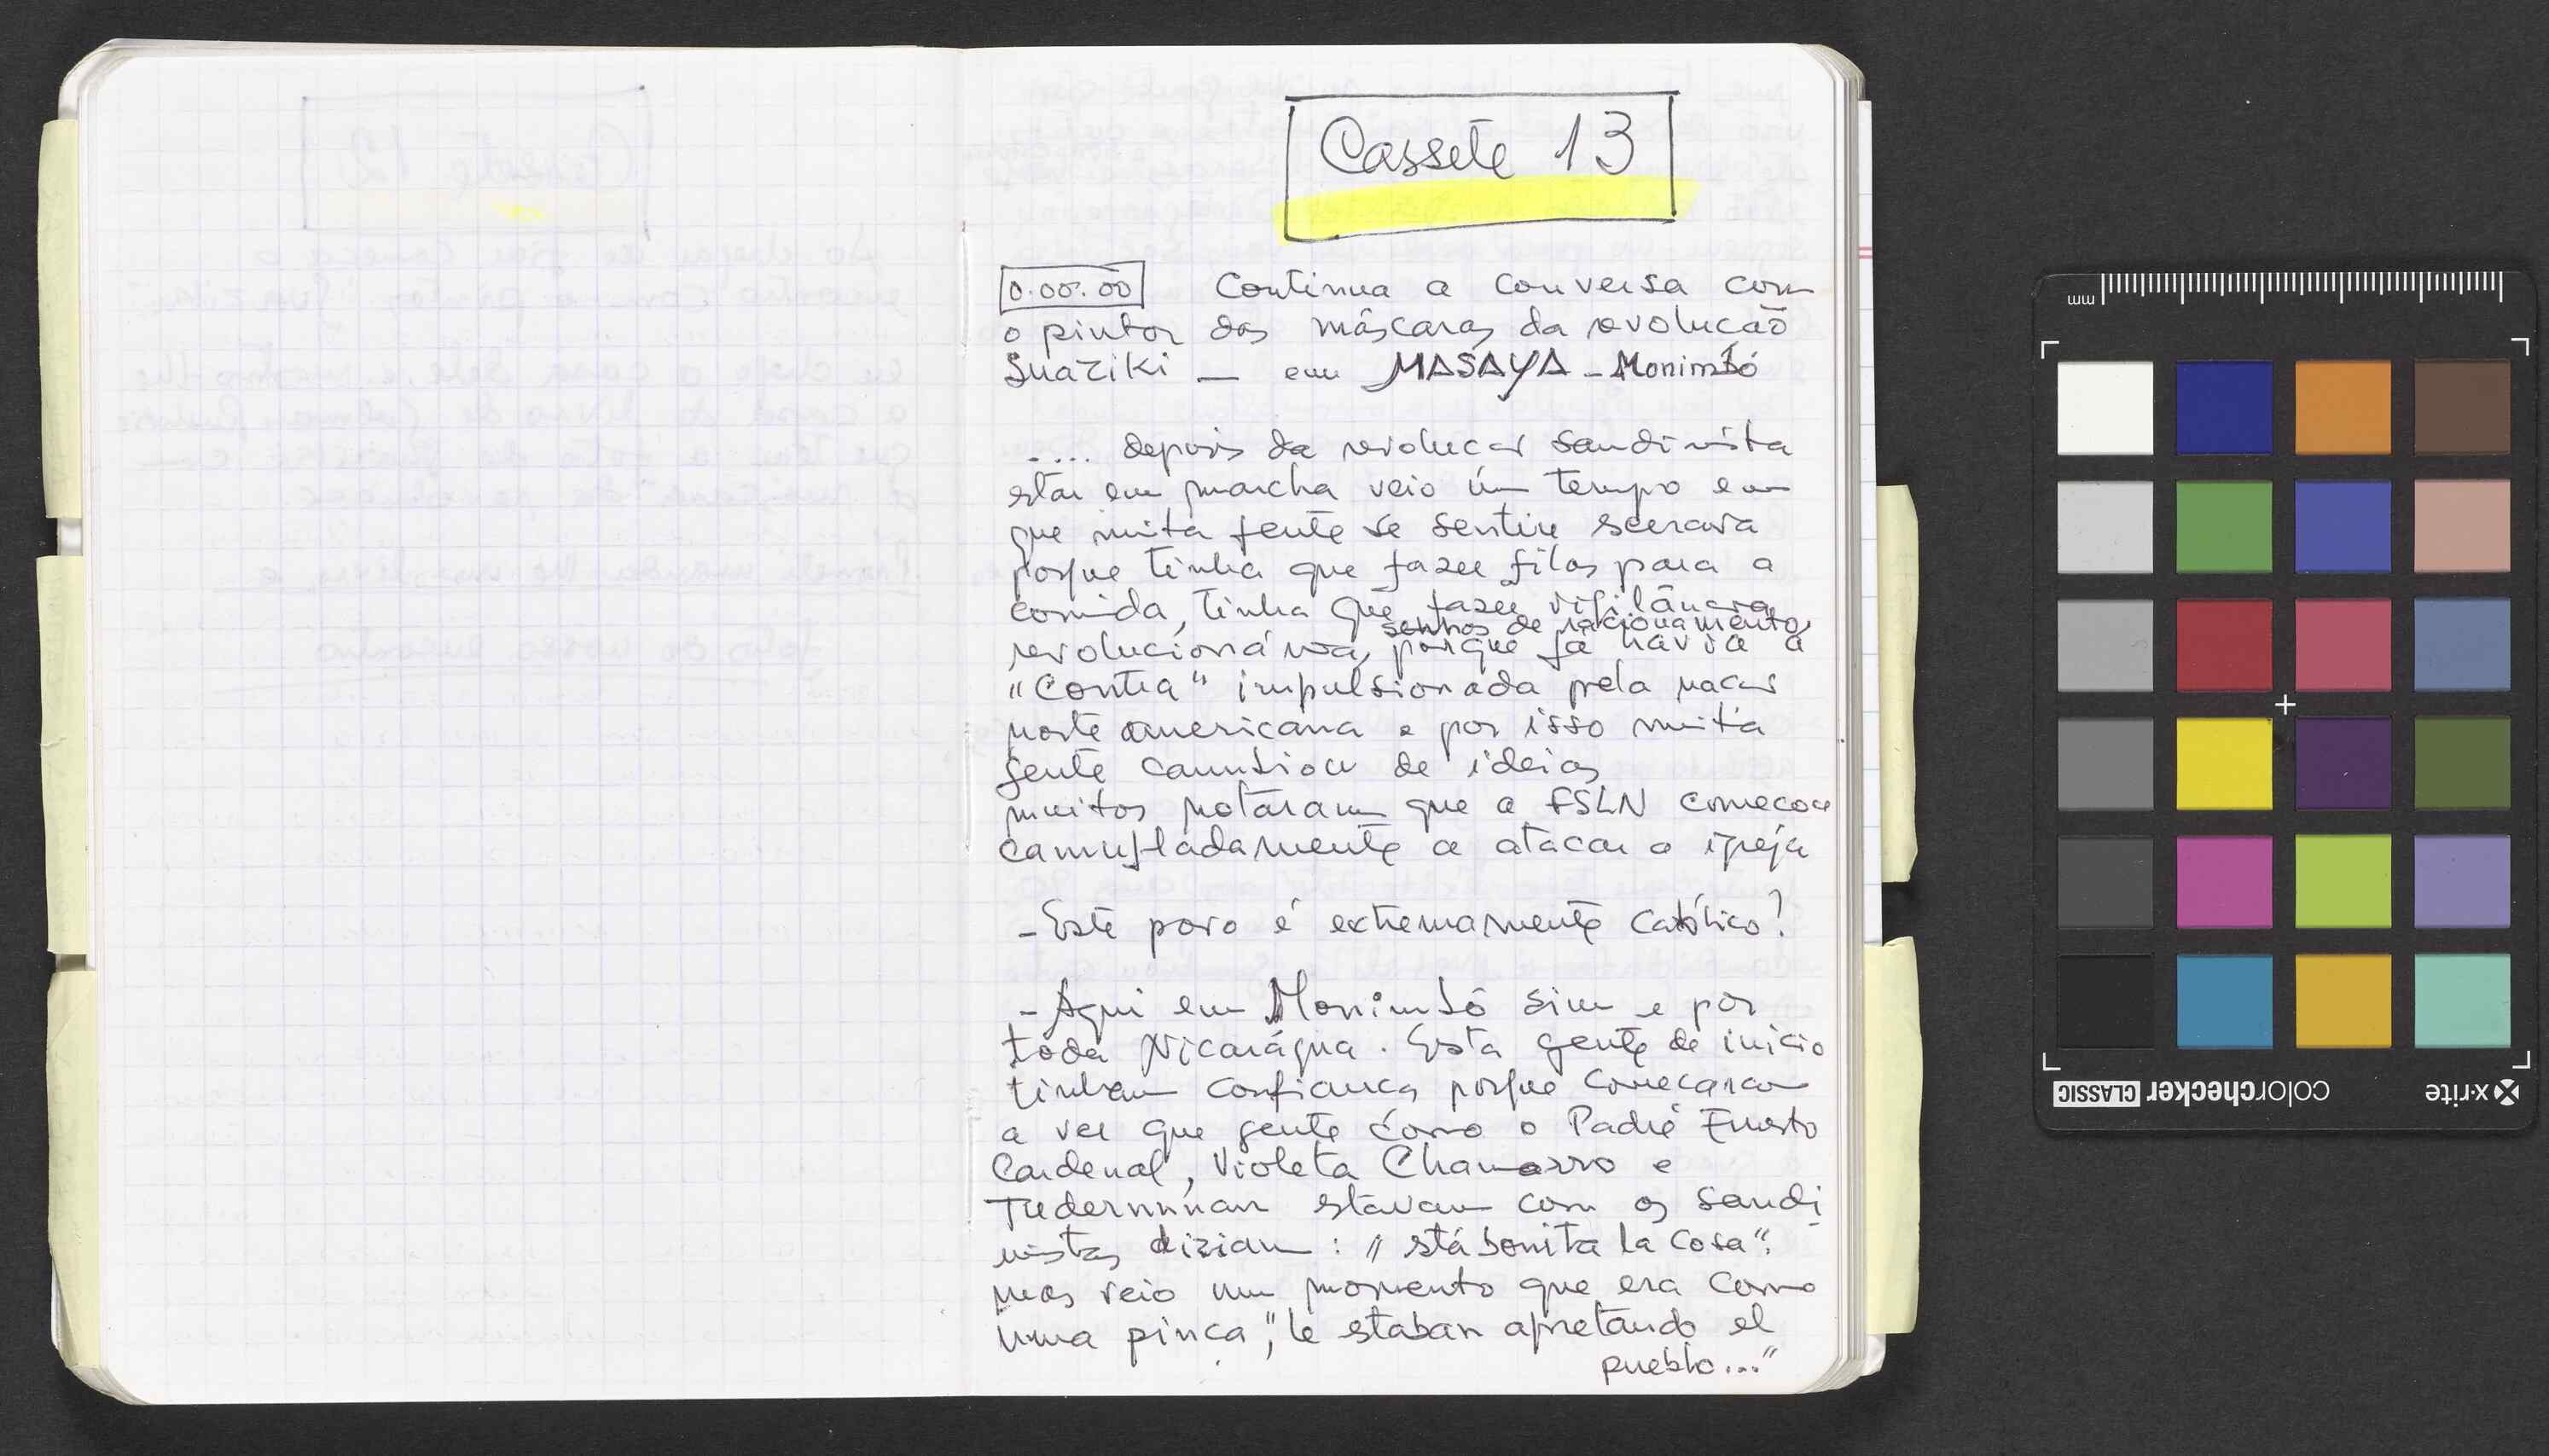 Cassete 13
0.00.00 Continua a conversa com
o pintor das máscaras da revolucaõ
Suaziki — em MASAYA - Monimbó
.... depois da revolucas sandinista
estar em marcha veio um tempo em
que muita gente se sentiu
porque tinha que fazer filas para a
comida, tinha que fazer vigilância
senhas de racionamento,
revolucionária, porque já havia a
"Contra" impulsionada pela nacas
norte americana e por isso muita
gente cambiou de ideias
muitos notaram que a FSLN comecou
camufladamente a atacar a igreja
- Este povo é extremamente católico?
- Aqui em Monimbó sim e por
toda Nicarágua. Esta gente de inicio
tinham confianca porque comecaram
a ver que gente como o Padre Ernesto
Cardenal, Violeta Chamorro e
estavam com os sandi
nistas diziam: "stá bonita la cosa".
mas veio um momento que era como
uma pinca, "le staban apretando el
pueblo..."
mm
x-rite colorchecker CLASSIC